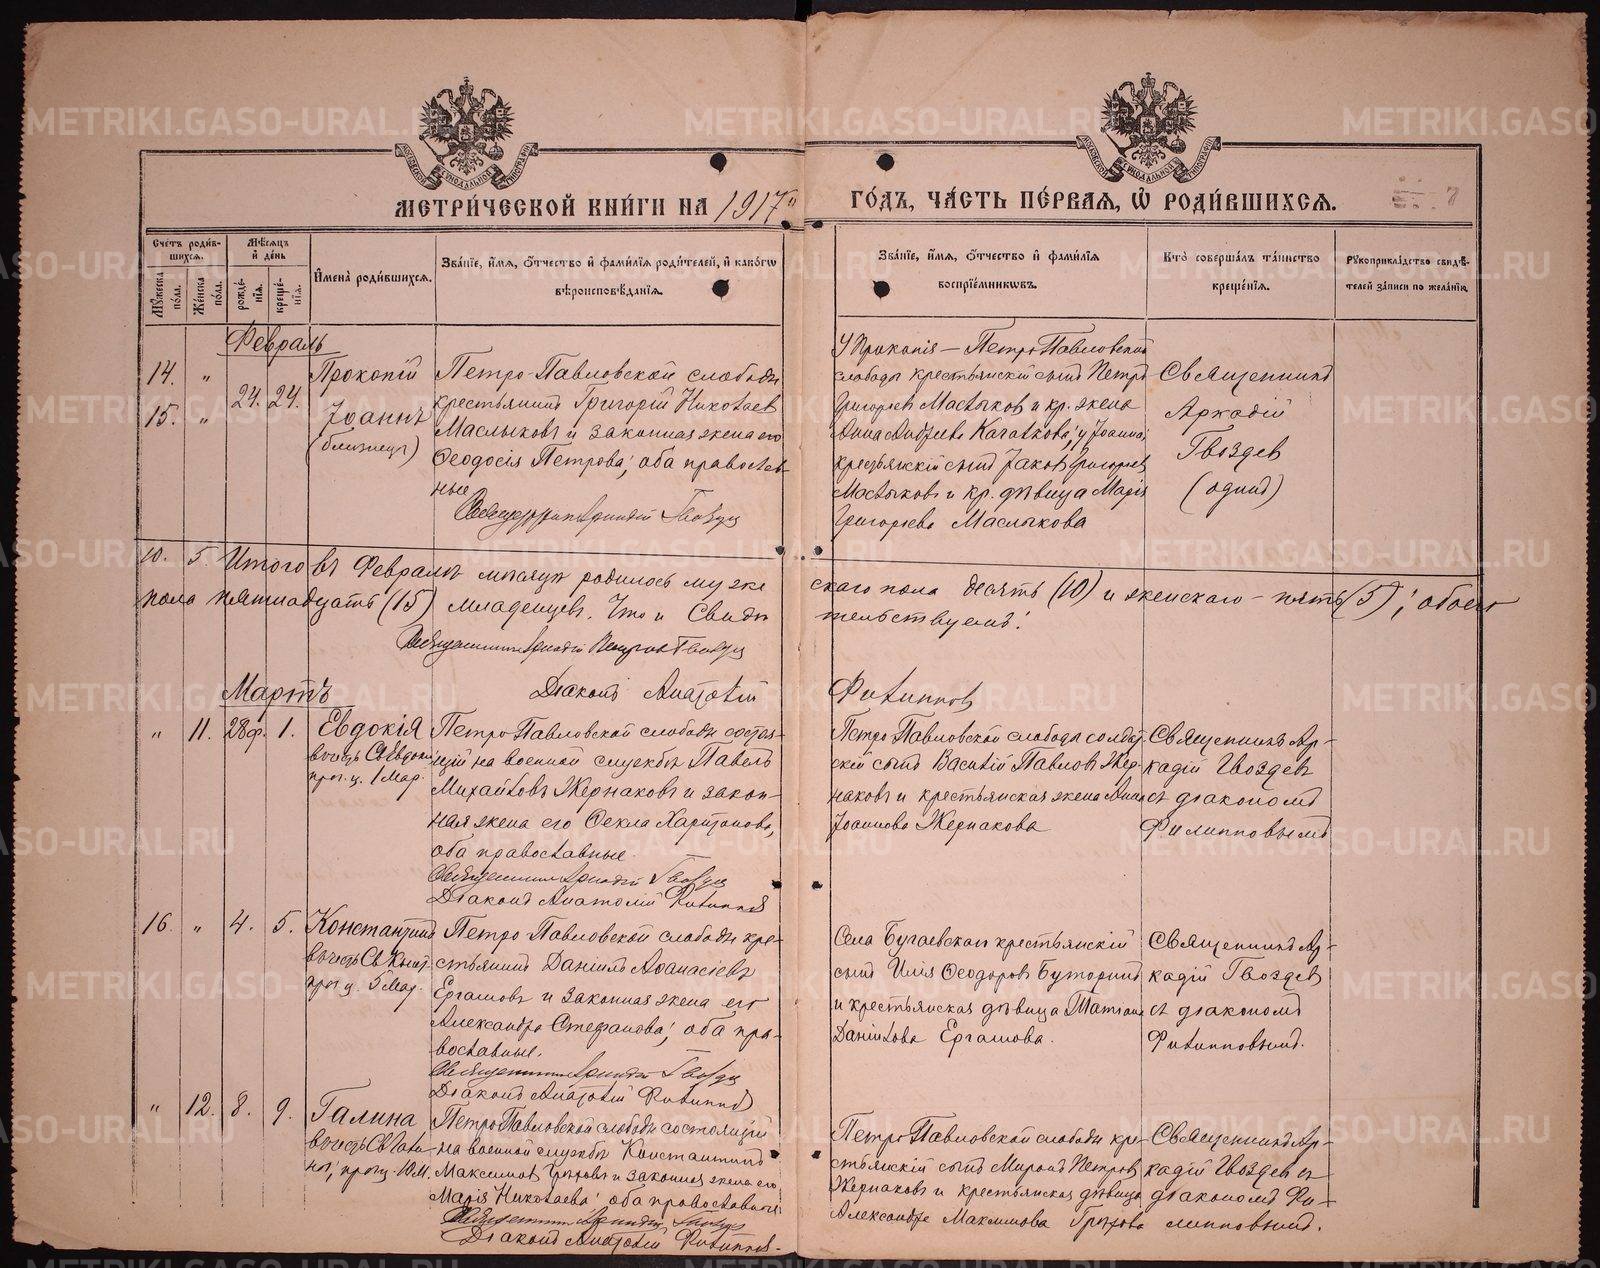 МЕТРИ́ЧЕСКОЙ КНИ́ГИ НА 1917
ГО́ДЪ, ЧА́СТЬ ПЕ́РВАЯ, Ѡ҆ РОДИ́ВШИХСЯ.
Сче́тъ роди́в-
шихся.
Мѣ́сяцъ
и҆ де́нь
Мꙋ́жеска
по́ла.
Же́нска
по́ла.
рожде́-
нїѧ.
креще́-
нїѧ.
И҆мена̀ роди́вшихся.
Зва́нїе, и҆́мя, ѻ҆́тчество и҆ фами́лїя роди́телей, и҆ како́гѡ
вѣроисповѣ́данїя.
Зва́нїе, и҆́мя, ѻ҆́тчество и҆ фами́лїя
воспрїе́мникѡвъ.
Кто̀ соверша́лъ та́инство
креще́нїя.
Рꙋкоприкла́дство свидѣ́-
телей за́писи по жела́нїю.
Февраль
14. "
15. "
24. 24.
Прокопій
Іоаннъ
(близнецы)
Петро-Павловской слободы
крестьянинъ Григорій Николаев
Маслыковъ и законная жена его
Ѳеодосія Петрова; оба православ-
ные
Священникъ Аркадій Гвоздев
У Прокопія – Петро Павловской
слободы крестьянскій сынъ Петръ
Григорьев Маслыков и кр. жена
Анна Андреева Качалкова; у Іоанна:
крестьянскій сынъ Іаков Григорьев
Маслыковъ и кр. дѣвица Марія
Григорьева Маслыкова
Священникъ
Аркадій
Гвоздев
(одинъ)
10. 5. Итого въ Февралѣ мѣсяцѣ родилось муже
скаго пола десять (10) и женскаго – пять (5); обоего
пола пятнадцать (15) младенцев. Что и Свидѣ
тельствуемъ:
Священникъ Аркадій Петров Гвоздев
Діаконъ Анатолій
Филиппов
Мартъ
" 11. 28ф. 1.
Евдокія
въ честь Св. Евдокіи
прп. м. 1 Мар.
Петро Павловской слободы состоя-
щій на военной службѣ Павелъ
Михайловъ Жернаковъ и закон-
ная жена его Ѳекла Харитонова,
оба православные.
Священникъ Аркадій Гвоздев
Діаконъ Анатолій Филиппов
Петро Павловской слободы солдат-
скій сынъ Василій Павлов Жер-
наковъ и крестьянская жена Анна
Іоаннова Жернакова
Священникъ Ар-
кадій Гвоздев
съ діакономъ
Филипповымъ
16. " 4. 5.
Константинъ
въ честь Св. Конст.
празд. 5 Мар.
Петро Павловской слободы кре-
стьянинъ Даніилъ Аѳанасіевъ
Ергашовъ и законная жена его
Александра Стефанова; оба пра-
вославные.
Священникъ Аркадій Гвоздев
Діаконъ Анатолій Филиппов
Села Бугаевскаго крестьянскій
сынъ Илія Ѳеодоров Буторинъ
и крестьянская дѣвица Татіана
Даніилова Ергашова.
Священникъ Ар-
кадій Гвоздев
съ діакономъ
Филипповымъ.
" 12. 8. 9.
Галина
въ честь Св. Гали-
ны, празд. 10 М.
Петро Павловской слободы состоящій
на военной службѣ Константинъ
Максимов Грѣховъ и законная жена его
Марія Николаева; оба православные
Священникъ Аркадій Гвоздев
Діаконъ Анатолій Филиппов.
Петро Павловской слободы кре-
стьянскій сынъ Миронъ Петров
Жернаковъ и крестьянская дѣвица
Александра Максимова Грѣхова
Священникъ Ар-
кадій Гвоздев съ
діакономъ Фи-
липповымъ.